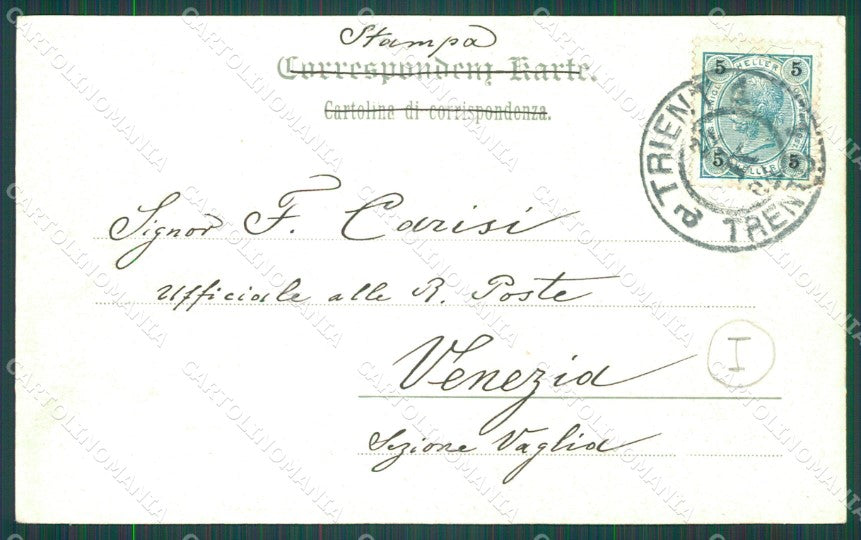 Stampa
Correspondenz-Karte.
Cartolina di corrispondenza.
5 HELLER 5
5 HELLER 5
TRIENT
TRENT
Signor F. Carisi
Ufficiale alle R. Poste
Venezia
I
Sezione Vaglia
CARTOLINOMANIA